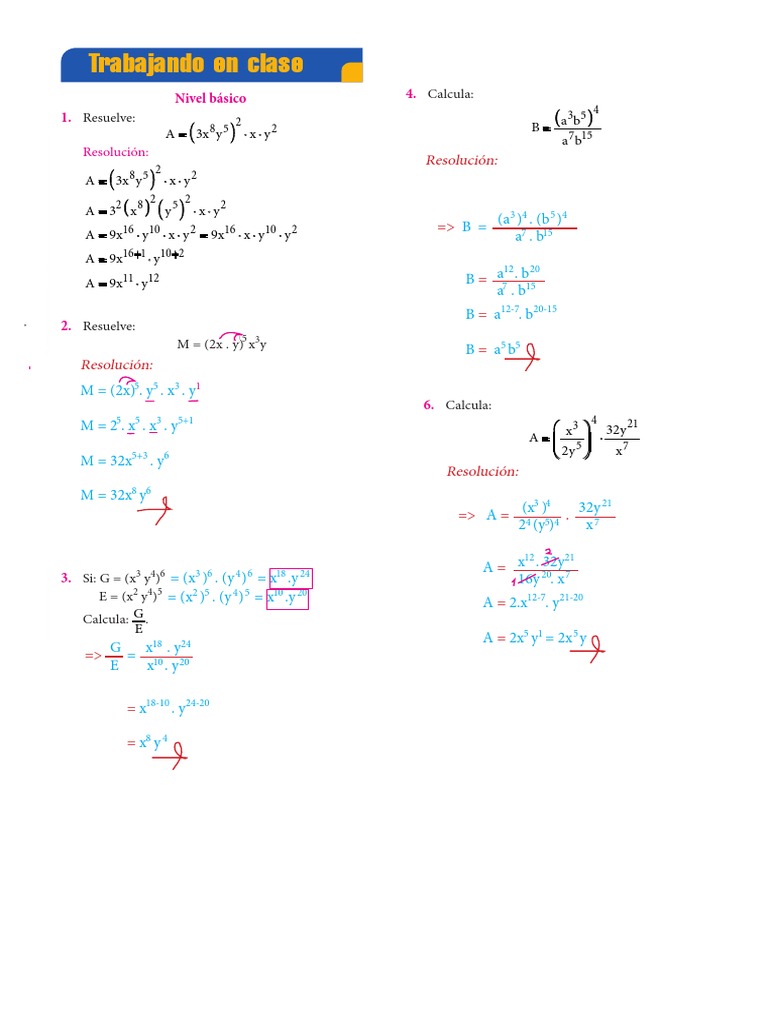 Trabajando en clase
Nivel básico
1. Resuelve:
A = (3x⁸y⁵)² · x · y²
Resolución:
A = (3x⁸y⁵)² · x · y²
A = 3² (x⁸)² (y⁵)² · x · y²
A = 9x¹⁶ · y¹⁰ · x · y² = 9x¹⁶ · x · y¹⁰ · y²
A = 9x¹⁶⁺¹ · y¹⁰⁺²
A = 9x¹¹ · y¹²
2. Resuelve:
M = (2x . y)⁵ x³y
Resolución:
M = (2x)⁵ . y⁵ . x³ . y¹
M = 2⁵ . x⁵ . x³ . y⁵⁺¹
M = 32x⁵⁺³ . y⁶
M = 32x⁸ y⁶
3. Si: G = (x³ y⁴)⁶ = (x³ )⁶ . (y⁴ )⁶ = x¹⁸ .y²⁴
E = (x² y⁴)⁵ = (x² )⁵ . (y⁴ )⁵ = x¹⁰ .y²⁰
Calcula: G/E.
=> G/E = x¹⁸ . y²⁴ / x¹⁰ . y²⁰
= x¹⁸⁻¹⁰ . y²⁴⁻²⁰
= x⁸ y⁴
4. Calcula:
B = (a³b⁵)⁴ / a⁷b¹⁵
Resolución:
=> B = (a³ )⁴ . (b⁵ )⁴ / a⁷ . b¹⁵
B = a¹² . b²⁰ / a⁷ . b¹⁵
B = a¹²⁻⁷ . b²⁰⁻¹⁵
B = a⁵ b⁵
6. Calcula:
A = (x³ / 2y⁵)⁴ · 32y²¹ / x⁷
Resolución:
=> A = (x³ )⁴ / 2⁴ (y⁵)⁴ . 32y²¹ / x⁷
2
A = x¹² . 32y²¹ / 16y²⁰ . x⁷
1
A = 2.x¹²⁻⁷ . y²¹⁻²⁰
A = 2x⁵ y¹ = 2x⁵ y